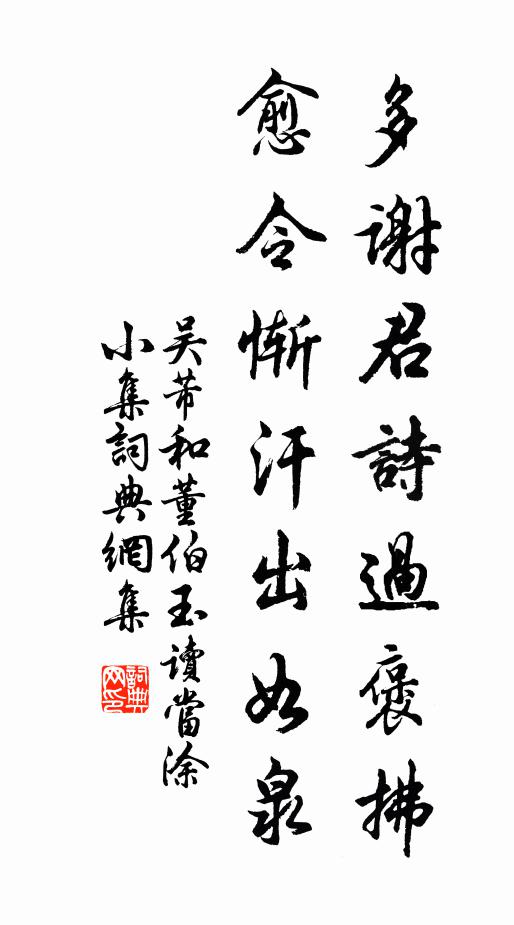 多謝君詩過褒拂
愈令慚汗出如泉
吴芾和董伯玉讀當涂
小集詞典網集
詞典网印